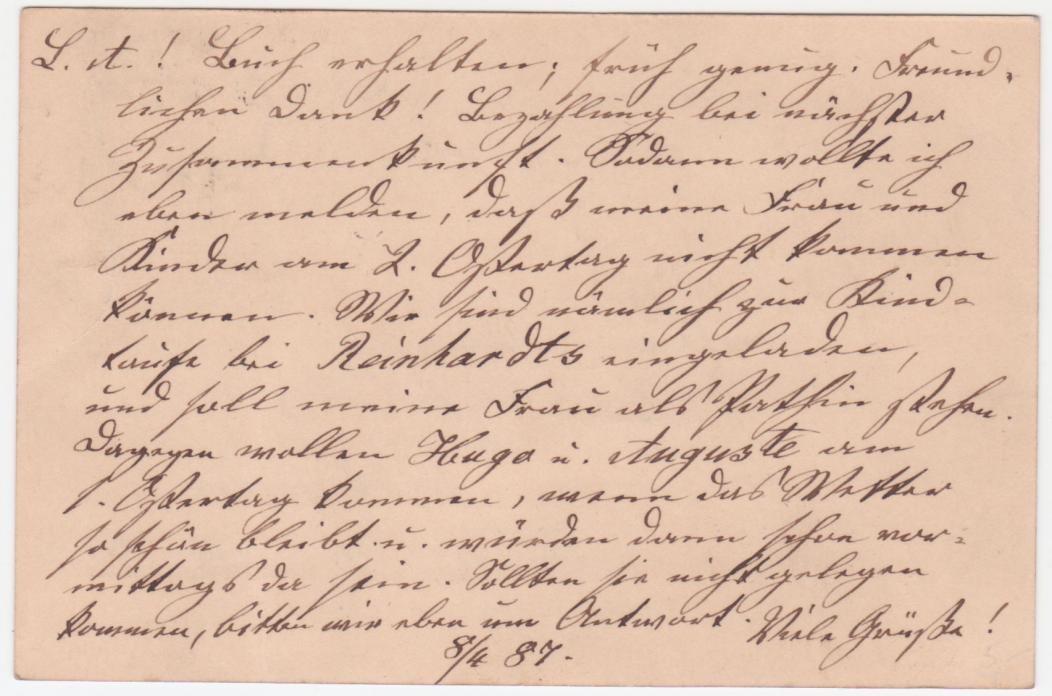 L. A.! Buch erhalten; früh genug. Freund-
lichen Dank! Bezahlung bei nächster
Zusammenkunft. Sodann wollte ich
eben melden, daß meine Frau und
Kinder am 2. Ostertag nicht kommen
können. Wir sind nämlich zur Kind-
taufe bei Reinhardts eingeladen,
und soll meine Frau als Pathin stehen.
Dagegen wollen Hugo u. Auguste am
1. Ostertag kommen, wenn das Wetter
so schön bleibt u. würden dann schon vor-
mittags da sein. Sollten sie nicht gelegen
kommen, bitten wir eben um Antwort. Viele Grüße!
8/4 87.